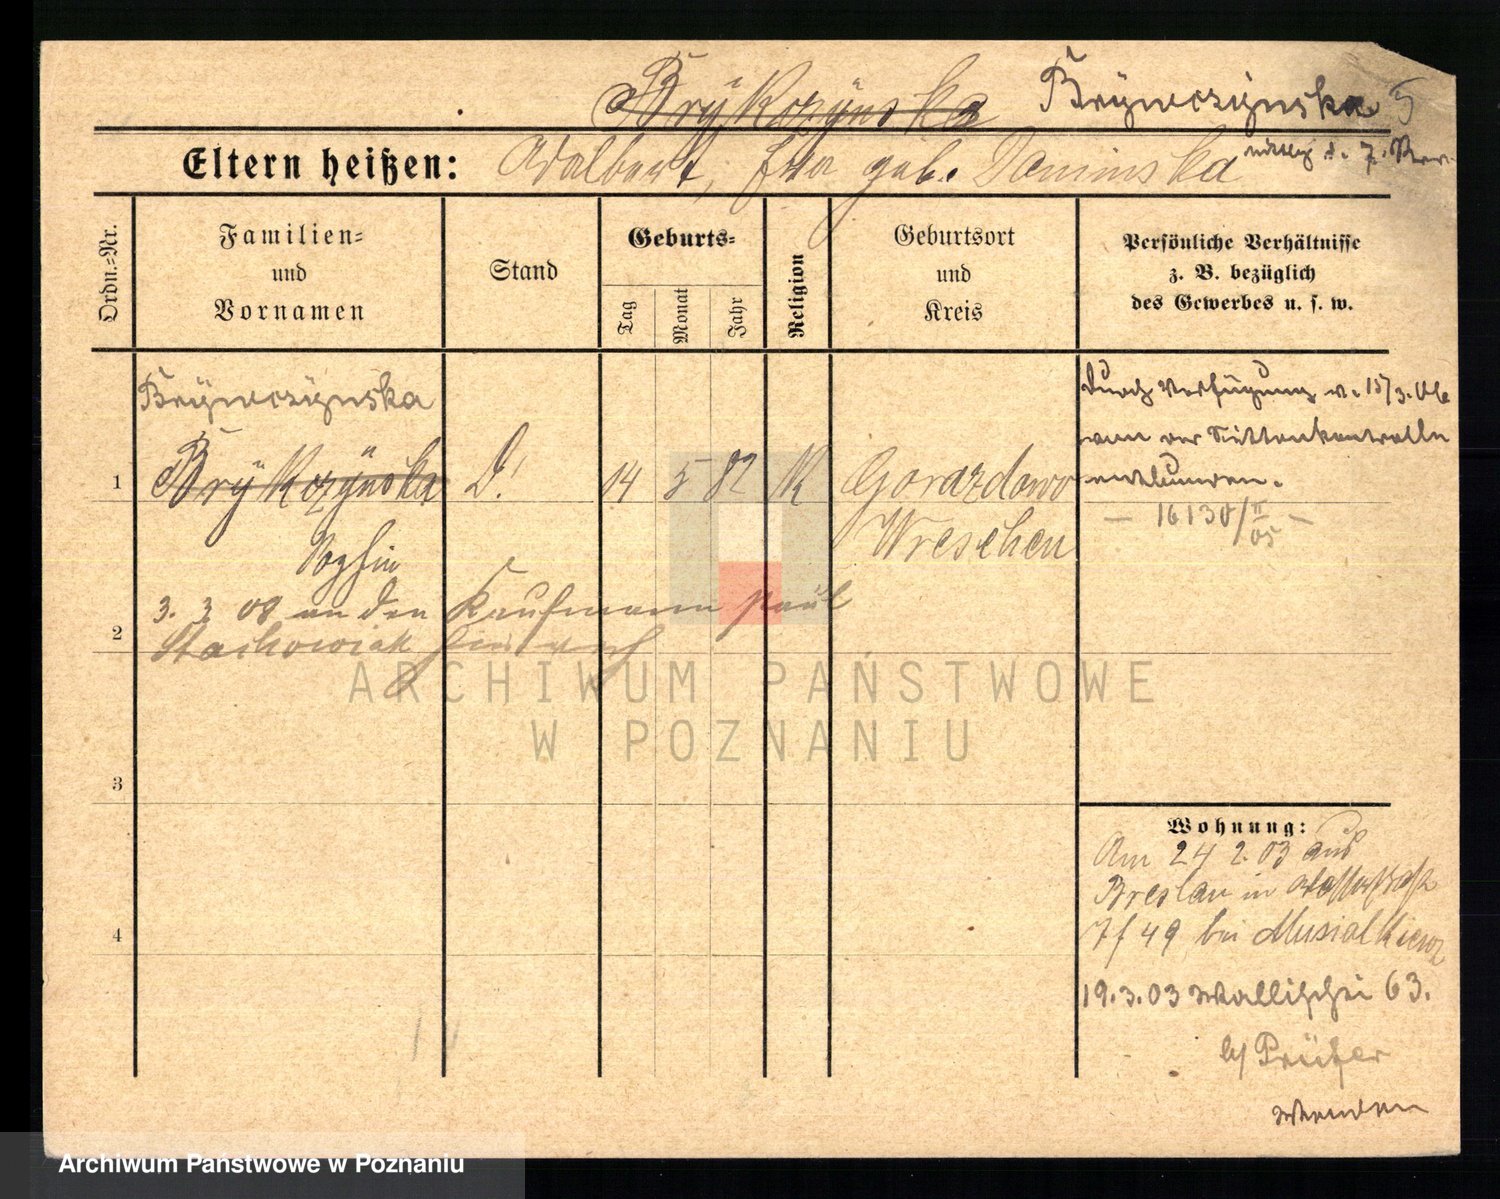 Brÿkczÿnska Brÿwczÿnska
Eltern heißen: Adalbert, Eva geb. Daminska
Ordn.=Nr.
Familien=
und
Vornamen
Stand
Geburts=
Tag
Monat
Jahr
Religion
Geburtsort
und
Kreis
Persönliche Verhältnisse
z. B. bezüglich
des Gewerbes u. s. w.
Brÿwczÿnska
1 Brÿkczÿnska D. 14 5 82 K Gorazdowo
Wreschen
Sophie
Durch Verfügung v. 15/3. 06
von der Sittenkontrolle
entbunden.
— 16130/II 05 —
3. 3. 08 an den Kaufmann Paul
2 Stachowiak
3
4
Wohnung:
Am 24 2. 03 aus
Breslau in
49 bei Musialkiewicz
19.3.03 Wallischei 63.
b/ Prüfer
Wenden
ARCHIWUM PAŃSTWOWE
W POZNANIU
Archiwum Państwowe w Poznaniu